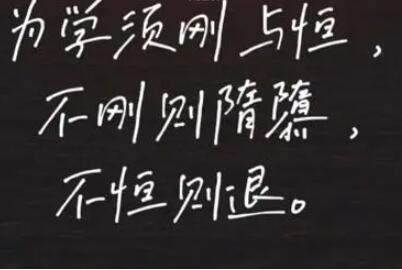 为学须刚与恒，
不刚则隋隳，
不恒则退。